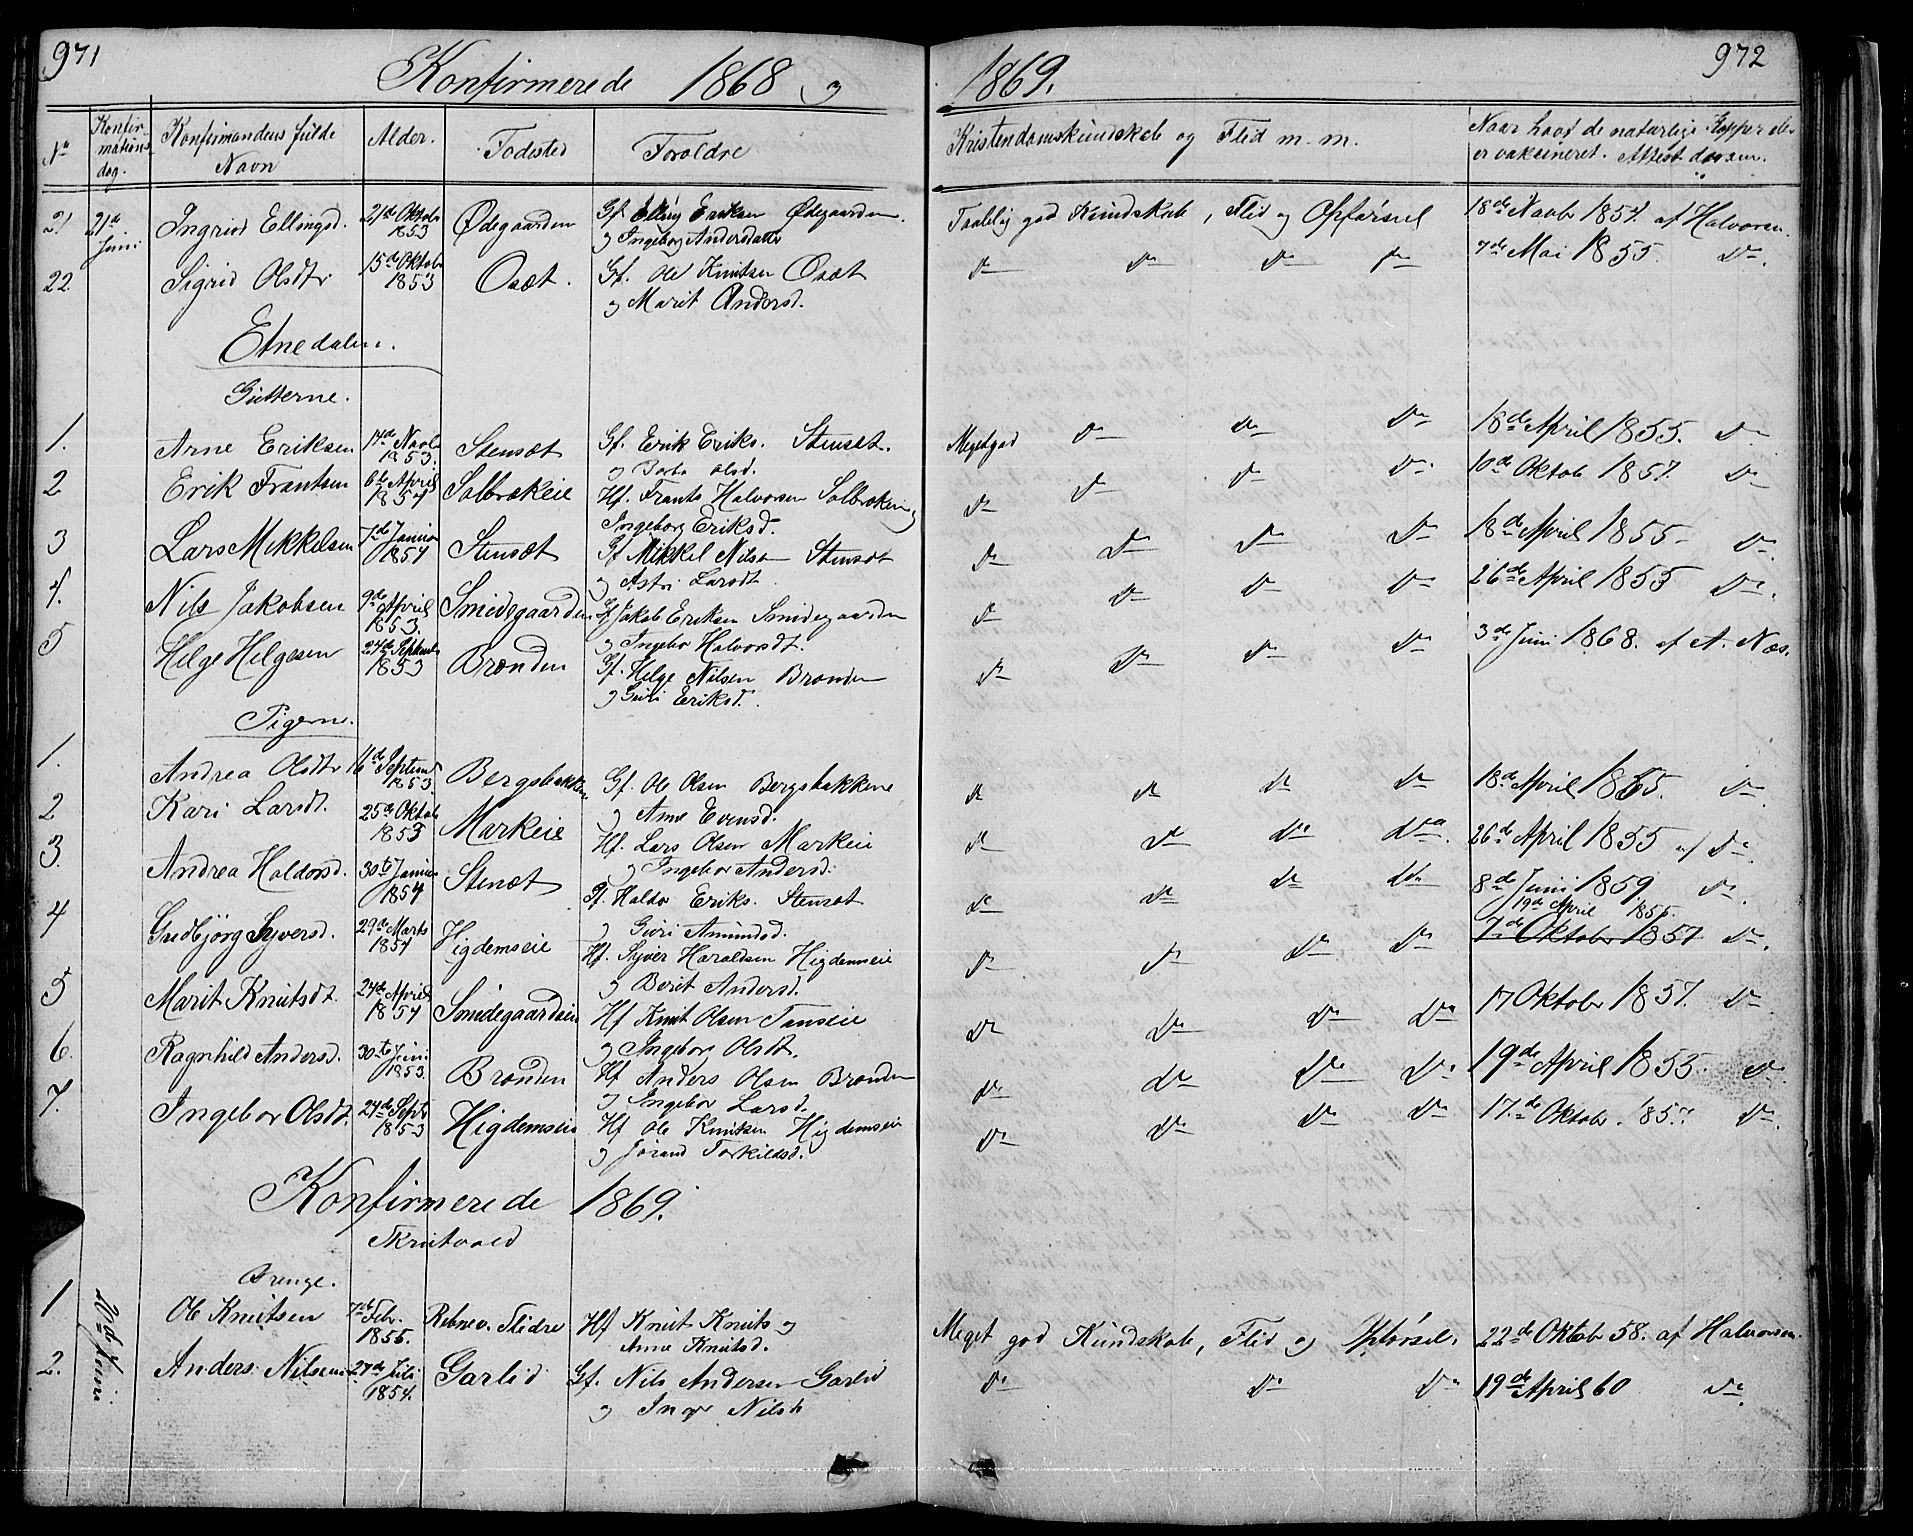 971
Konfirmerede 1868 og 1869.
972
No
Konfirmations dag.
Konfirmandens fulde Navn
Alder.
Fødested
Foroldre
Kristendomskundskab og Flid m. m.
Naar havt de naturlige Kopper eller er vaksineret. Attest derom.
21 21de Juni Ingrid Ellingsd. 21de Oktob 1853 Ødegaarden Gf. Elling Eriksen Ødegaarden. Taalelig god Kundskab, Flid og Opførsel 18de Novb 1857. af Halvorsen
og Ingeborg Andersdatter
22 Sigrid Olsdtr 15de Oktob 1853 Osæt. Gf. Ole Knutsen Osæt do do do do 7de Mai 1855. do.
og Marit Andersd.
Etnedalen.
Gutterne.
1. Arne Eriksen 14de Novb 1853. Stensæt Gf. Erik Eriks. Stensæt. Meget god do do do 18de April 1855. do
og Olsd.
2 Erik Frantsen 6te April 1854 Solbrækeie Hf. Frants Halvorsen Solbrækeie og do do do do 10de Oktob 1857. do
Ingeborg Eriksd.
3 Lars Mikkelsen 7de Januar 1854 Stensæt Gf Mikkel Nilsen Stensæt do do do do 18de April 1855 do
og Astri Larsdt.
4. Nils Jakobsen 9de April 1853. Smedegaarden Gf Jakob Eriksen Smidegaarden do do do do 26de April 1855 do.
og Ingebor Halvorsdt.
5 Helge Helgesen 24de Septemb 1853 Brønden Gf. Helge Nilsen Brønden do do do do 3de Juni 1868. af A. Næs.
og Guli Eriksd.
Pigerne.
1. Andrea Olsdtr 16de Septemb 1853. Bergsbakken Gf. Ole Olsen Bergsbakkene do do do do 18de April 1855. do
og Anne Evensd.
2 Kari Larsdt. 25de Oktob 1853 Markeie Hf. Lars Olsen Markeie do do do do 26de April 1855 af do
og Ingebor Andersd.
3. Andrea Haldorsd. 30te Januar 1854 Stensæt Gf. Haldor Eriks. Stensæt do do do do 8de Juni 1859 do.
og Guri Amundsd.
19de April 1855.
4 Gudbjørg Syversd. 29de Marts 1854 Higdemseie Hf. Syver Haraldsen Higdemseie do do do do 7de Oktober 1857 do.
og Berit Andersd.
5 Marit Knutsdt. 24de April 1854 Smidegaardseie Hf Knut Olsen do do do do 17 Oktober 1857. do
og Ingebor Olsdt.
6. Ragnhild Andersd. 30te Juni 1853. Brønden Hf Anders Olsen Brønden do do do do 19de April 1855. do.
og Ingebor Larsd.
7. Ingebor Olsdt. 24de Septr 1853 Higdemseie Hf Ole Knutsen Higdemseie do do do do 17.de Oktober. 1857. do.
og Jørand Torkildsd.
Konfirmerede 1869.
Skrutvold
Drenge.
1 Juni Ole Knutsen 7de Febr. 1855. Rebne v. Slidre Hf Knut Knuts og Meget god Kundskab, Flid og Opførsel. 22de Oktob 58. af Halvorsen.
Anne Knutsd.
2. Anders Nilsen 27de Juli 1854. Garlid Gf. Nils Andersen Garlid do do do 19de April 60 do.
og Inger Nilsdt